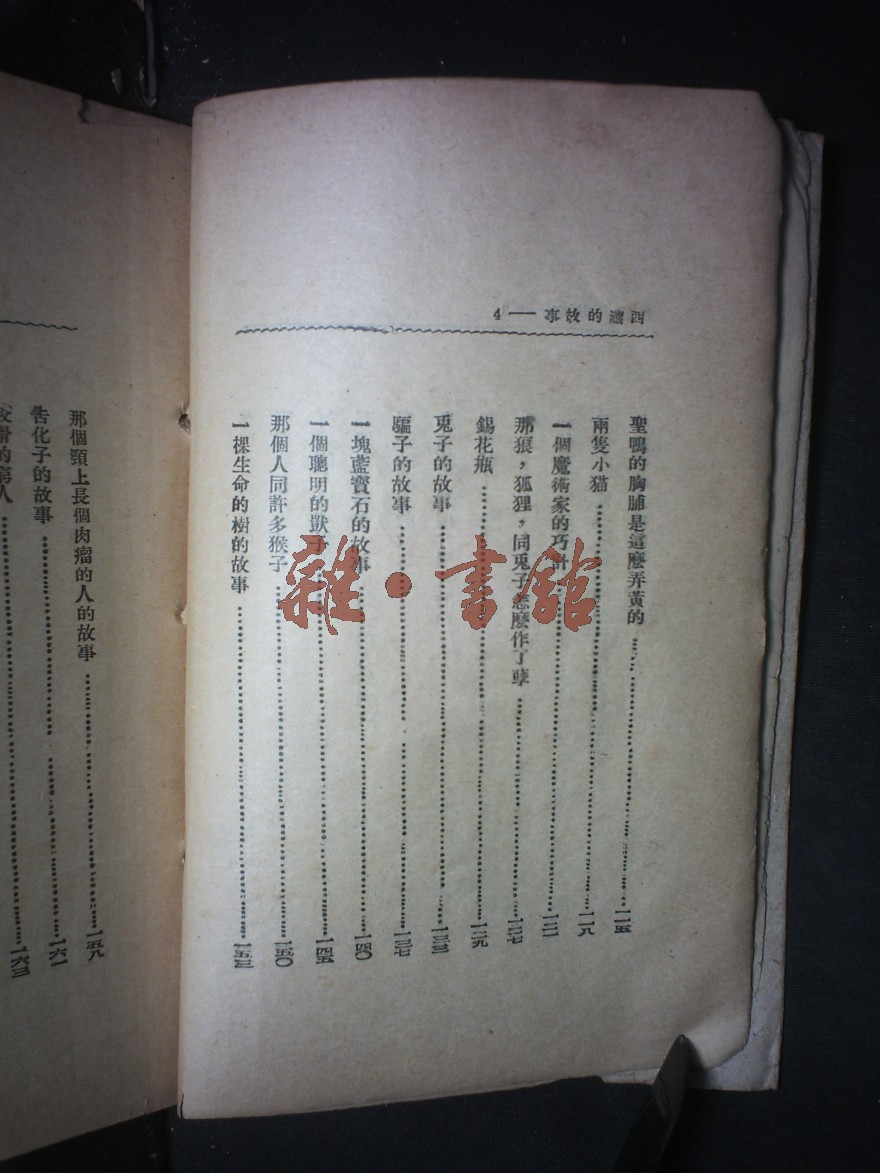 西藏的故事——4
聖鴨的胸脯是這麼弄黃的……一一五
兩隻小猫……一一八
一個魔術家的巧計……一二一
那狼，狐狸，同兎子怎麼作了孽……一二七
錫花瓶……一二九
兎子的故事……一三三
騙子的故事……一三七
一塊藍寶石的故事……一四〇
一個聰明的獸子……一四五
那個人同許多猴子……一五〇
一棵生命的樹的故事……一五三
那個頸上長個肉瘤的人的故事……一五八
告化子的故事……一六一
的窮人……一六三
雜·書館